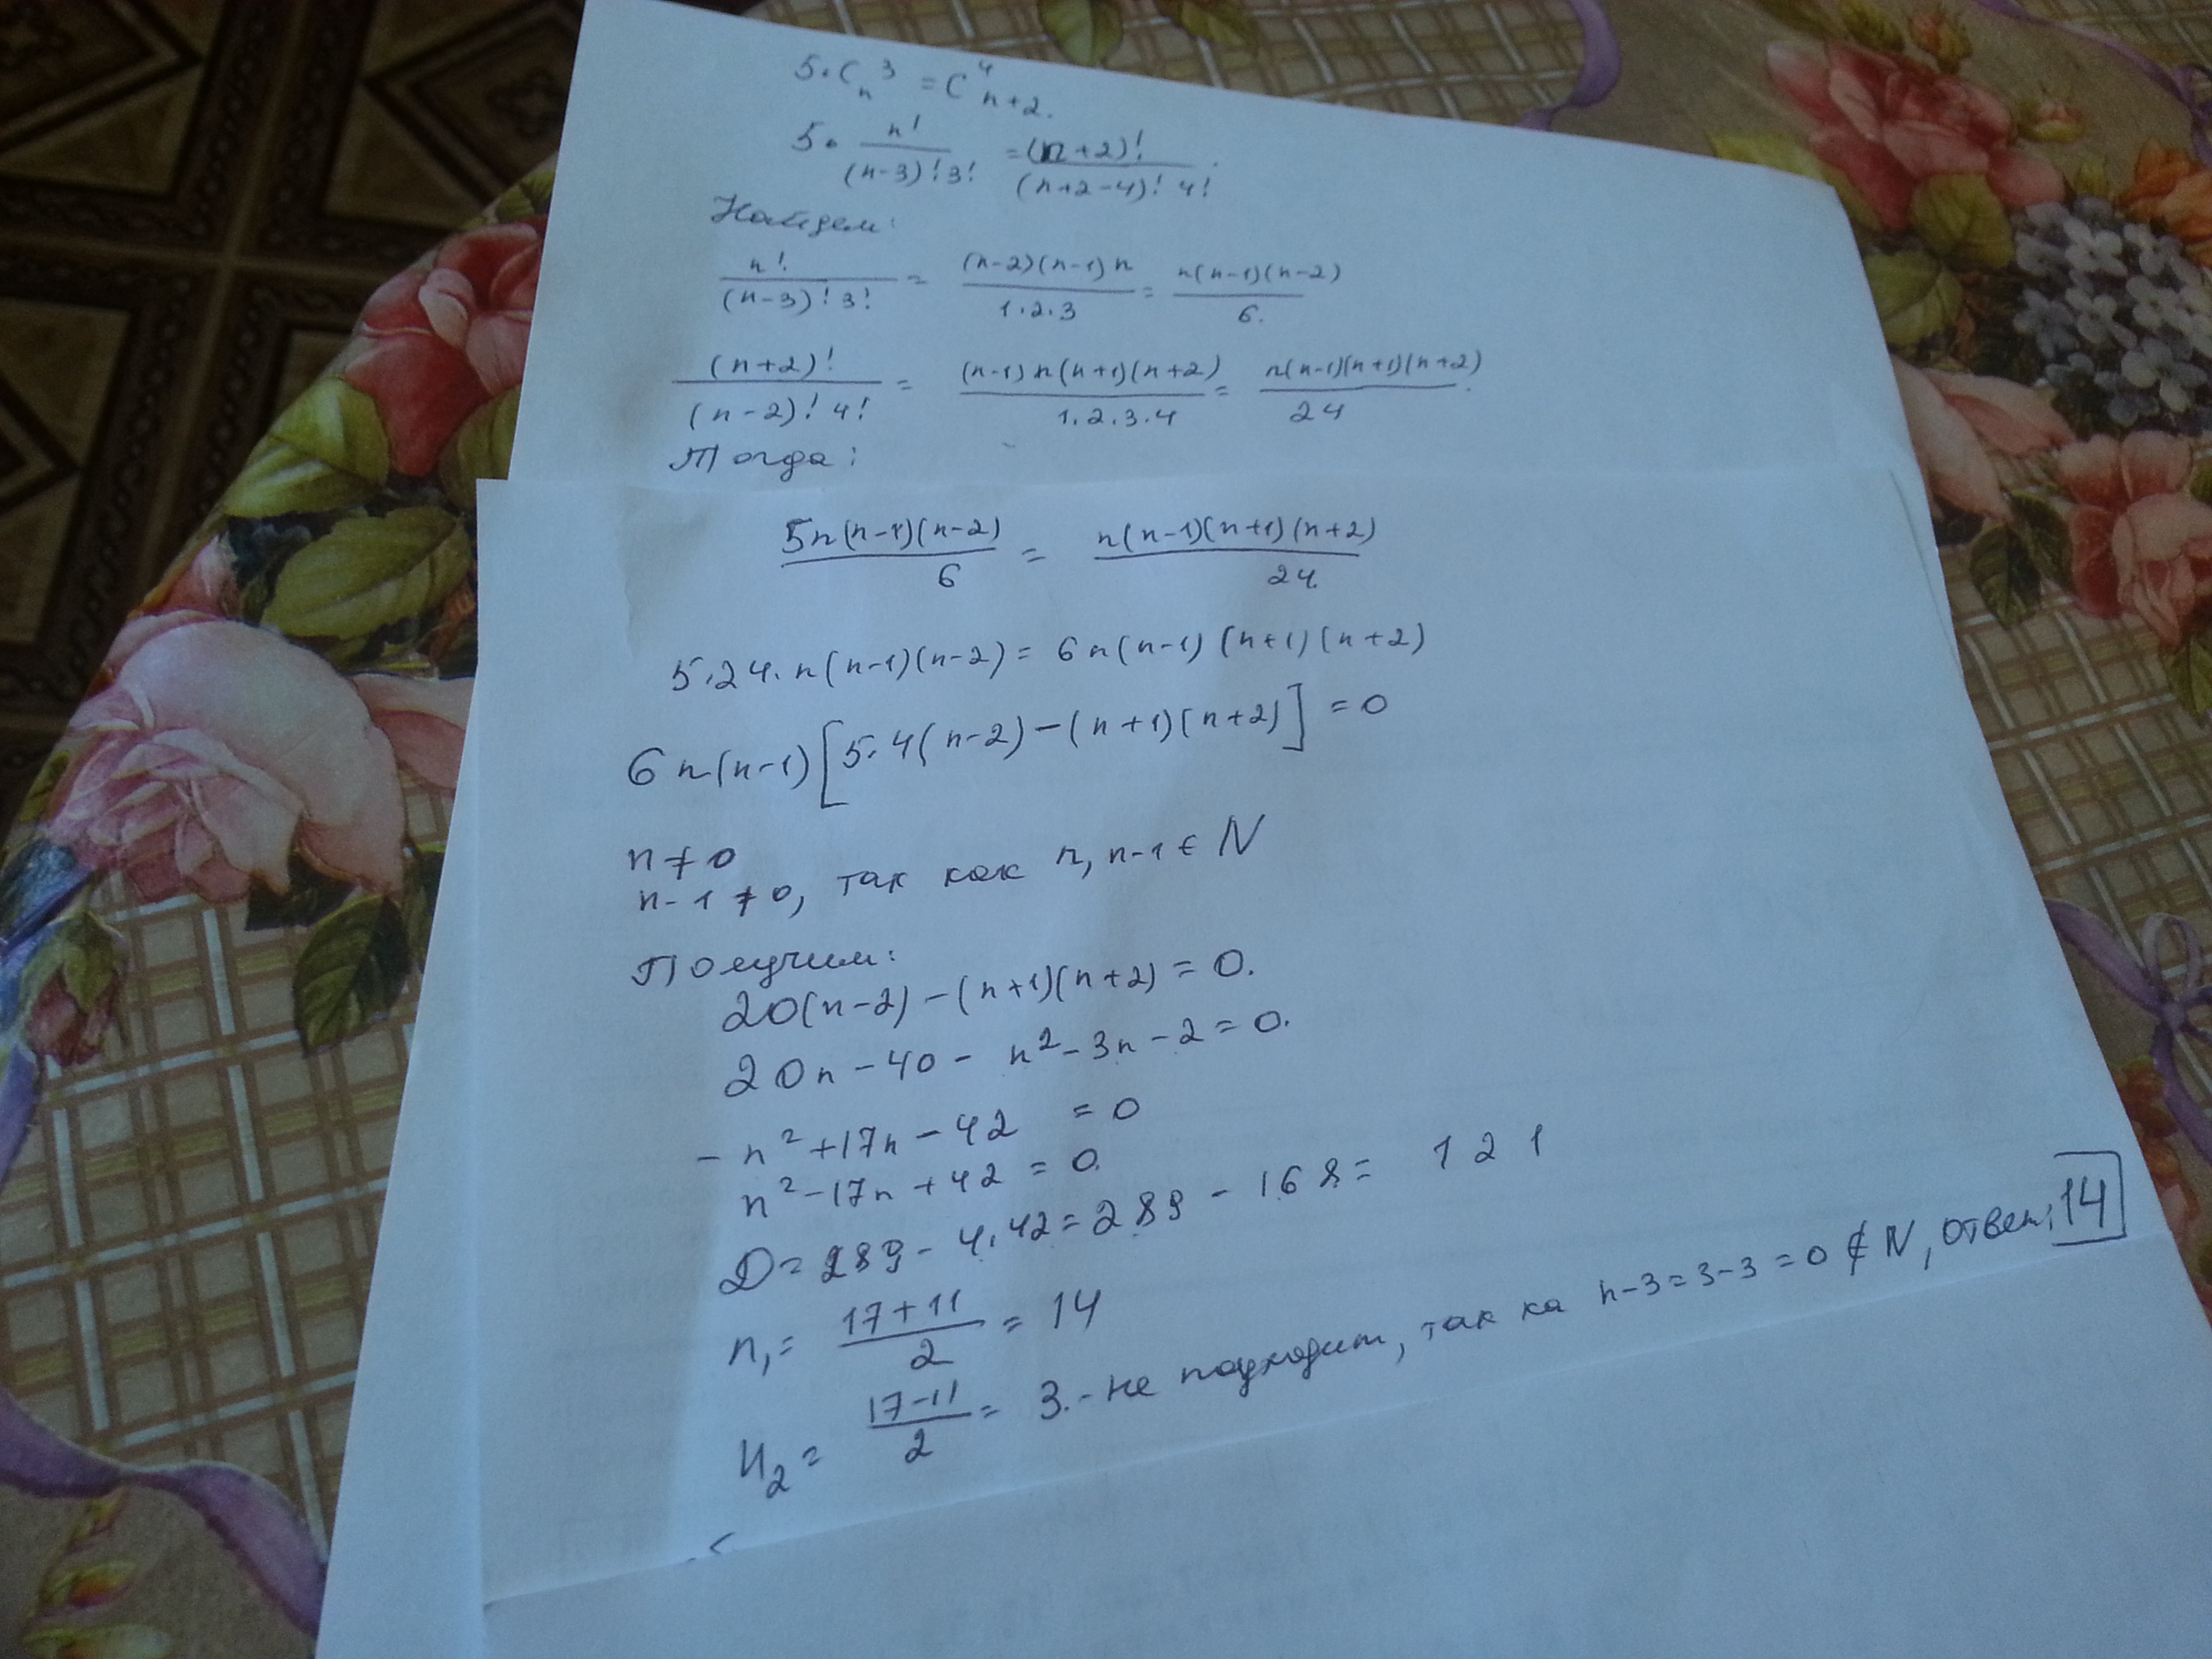 5·C_n^3 = C_{n+2}^4.
5· n!/((n-3)!3!) = (n+2)!/((n+2-4)! 4!)
Найдем:
n!/((n-3)!3!) = (n-2)(n-1)n/(1·2·3) = n(n-1)(n-2)/6.
(n+2)!/((n-2)!4!) = (n-1)n(n+1)(n+2)/(1.2.3.4) = n(n-1)(n+1)(n+2)/24.
Тогда:
5n(n-1)(n-2)/6 = n(n-1)(n+1)(n+2)/24.
5·24·n(n-1)(n-2) = 6n(n-1)(n+1)(n+2)
6n(n-1)[5·4(n-2)-(n+1)(n+2)] = 0
n≠0
n-1≠0, так как n, n-1 ∈ N
Получим:
20(n-2)-(n+1)(n+2) = 0.
20n-40-n²-3n-2 = 0.
-n²+17n-42 = 0
n²-17n+42 = 0.
D = 289-4·42 = 289-168 = 121
n₁ = (17+11)/2 = 14
n₂ = (17-11)/2 = 3.-не подходит, так ка n-3=3-3=0 ∉ N, Ответ: 14